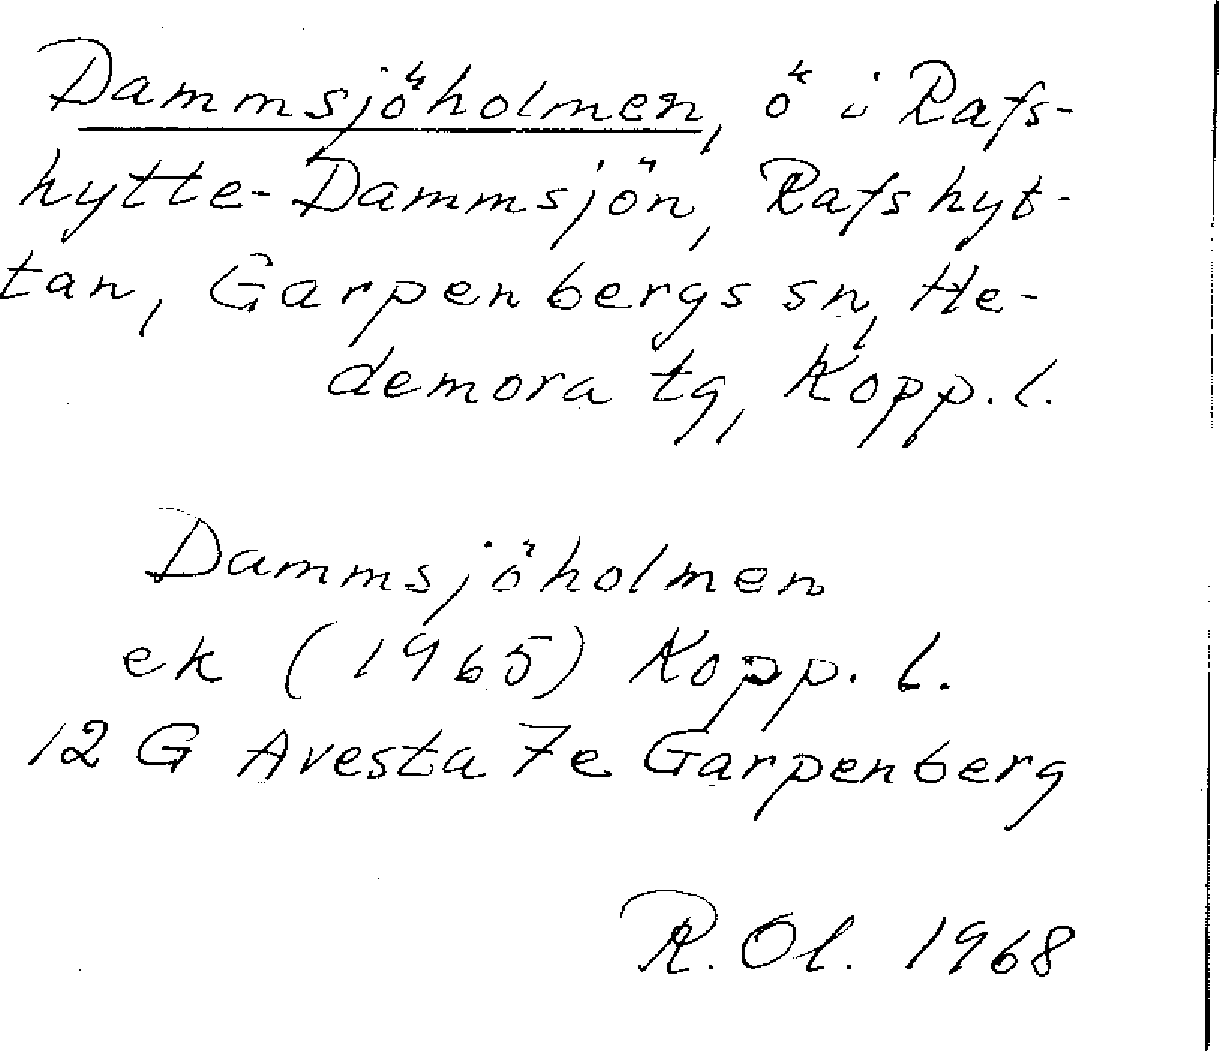 Dammsjöholmen, ö i Rafs-
hytte-Dammsjön, Rafshyt-
tan, Garpenbergs sn, He-
demora tg, Kopp. l.
Dammsjöholmen
ek (1965) Kopp. l.
12 G Avesta 7e Garpenberg
R. Ol. 1968